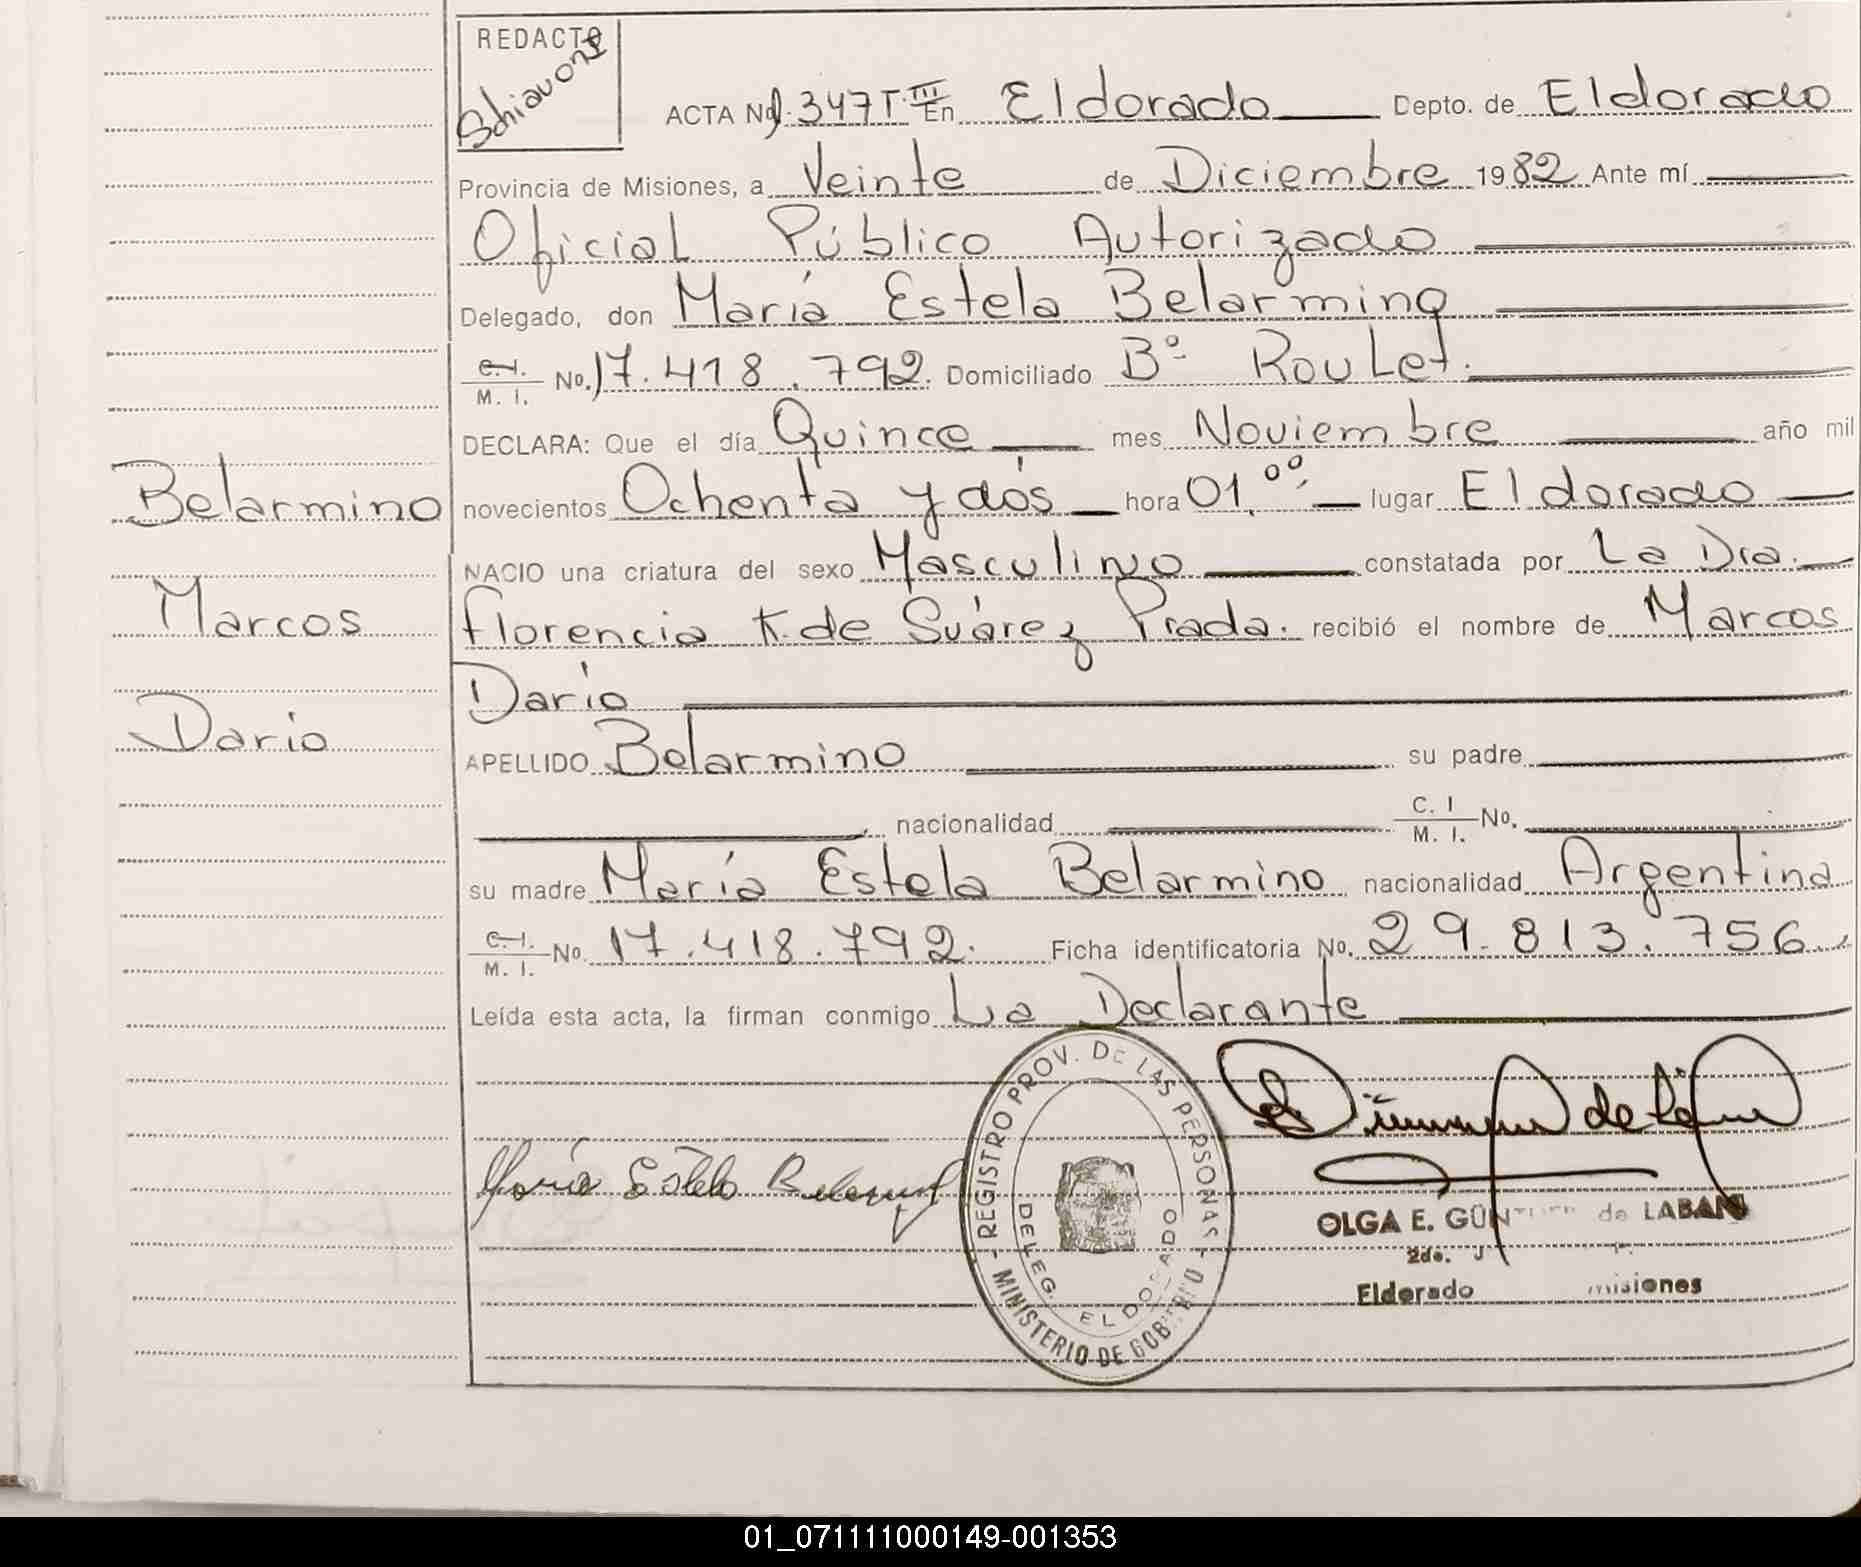 REDACTO
Schiavoni
ACTA No 1.347 T. III En Eldorado Depto. de Eldorado
Provincia de Misiones, a Veinte de Diciembre 1982 Ante mí
Oficial Público Autorizado
Delegado, don María Estela Belarmino
C. I. M. I. No. 17.418.792. Domiciliado Bº Roulet.
DECLARA: Que el día Quince mes Noviembre año mil
novecientos Ochenta y dós hora 01,00, lugar Eldorado
NACIO una criatura del sexo Masculino constatada por La Dra.
Florencia K. de Suárez Prada. recibió el nombre de Marcos
Darío
APELLIDO Belarmino su padre
nacionalidad C. I M. I. No.
su madre María Estela Belarmino nacionalidad Argentina
C. I. M. I. No. 17.418.792. Ficha identificatoria No. 29.813.756.
Leída esta acta, la firman conmigo La Declarante
Belarmino
Marcos
Darío
María Estela Belarmino
REGISTRO PROV. DE LAS PERSONAS
MINISTERIO DE GOBIERNO
DELEG. ELDORADO
OLGA E. de LABAN
2do.
Eldorado misiones
01_071111000149-001353